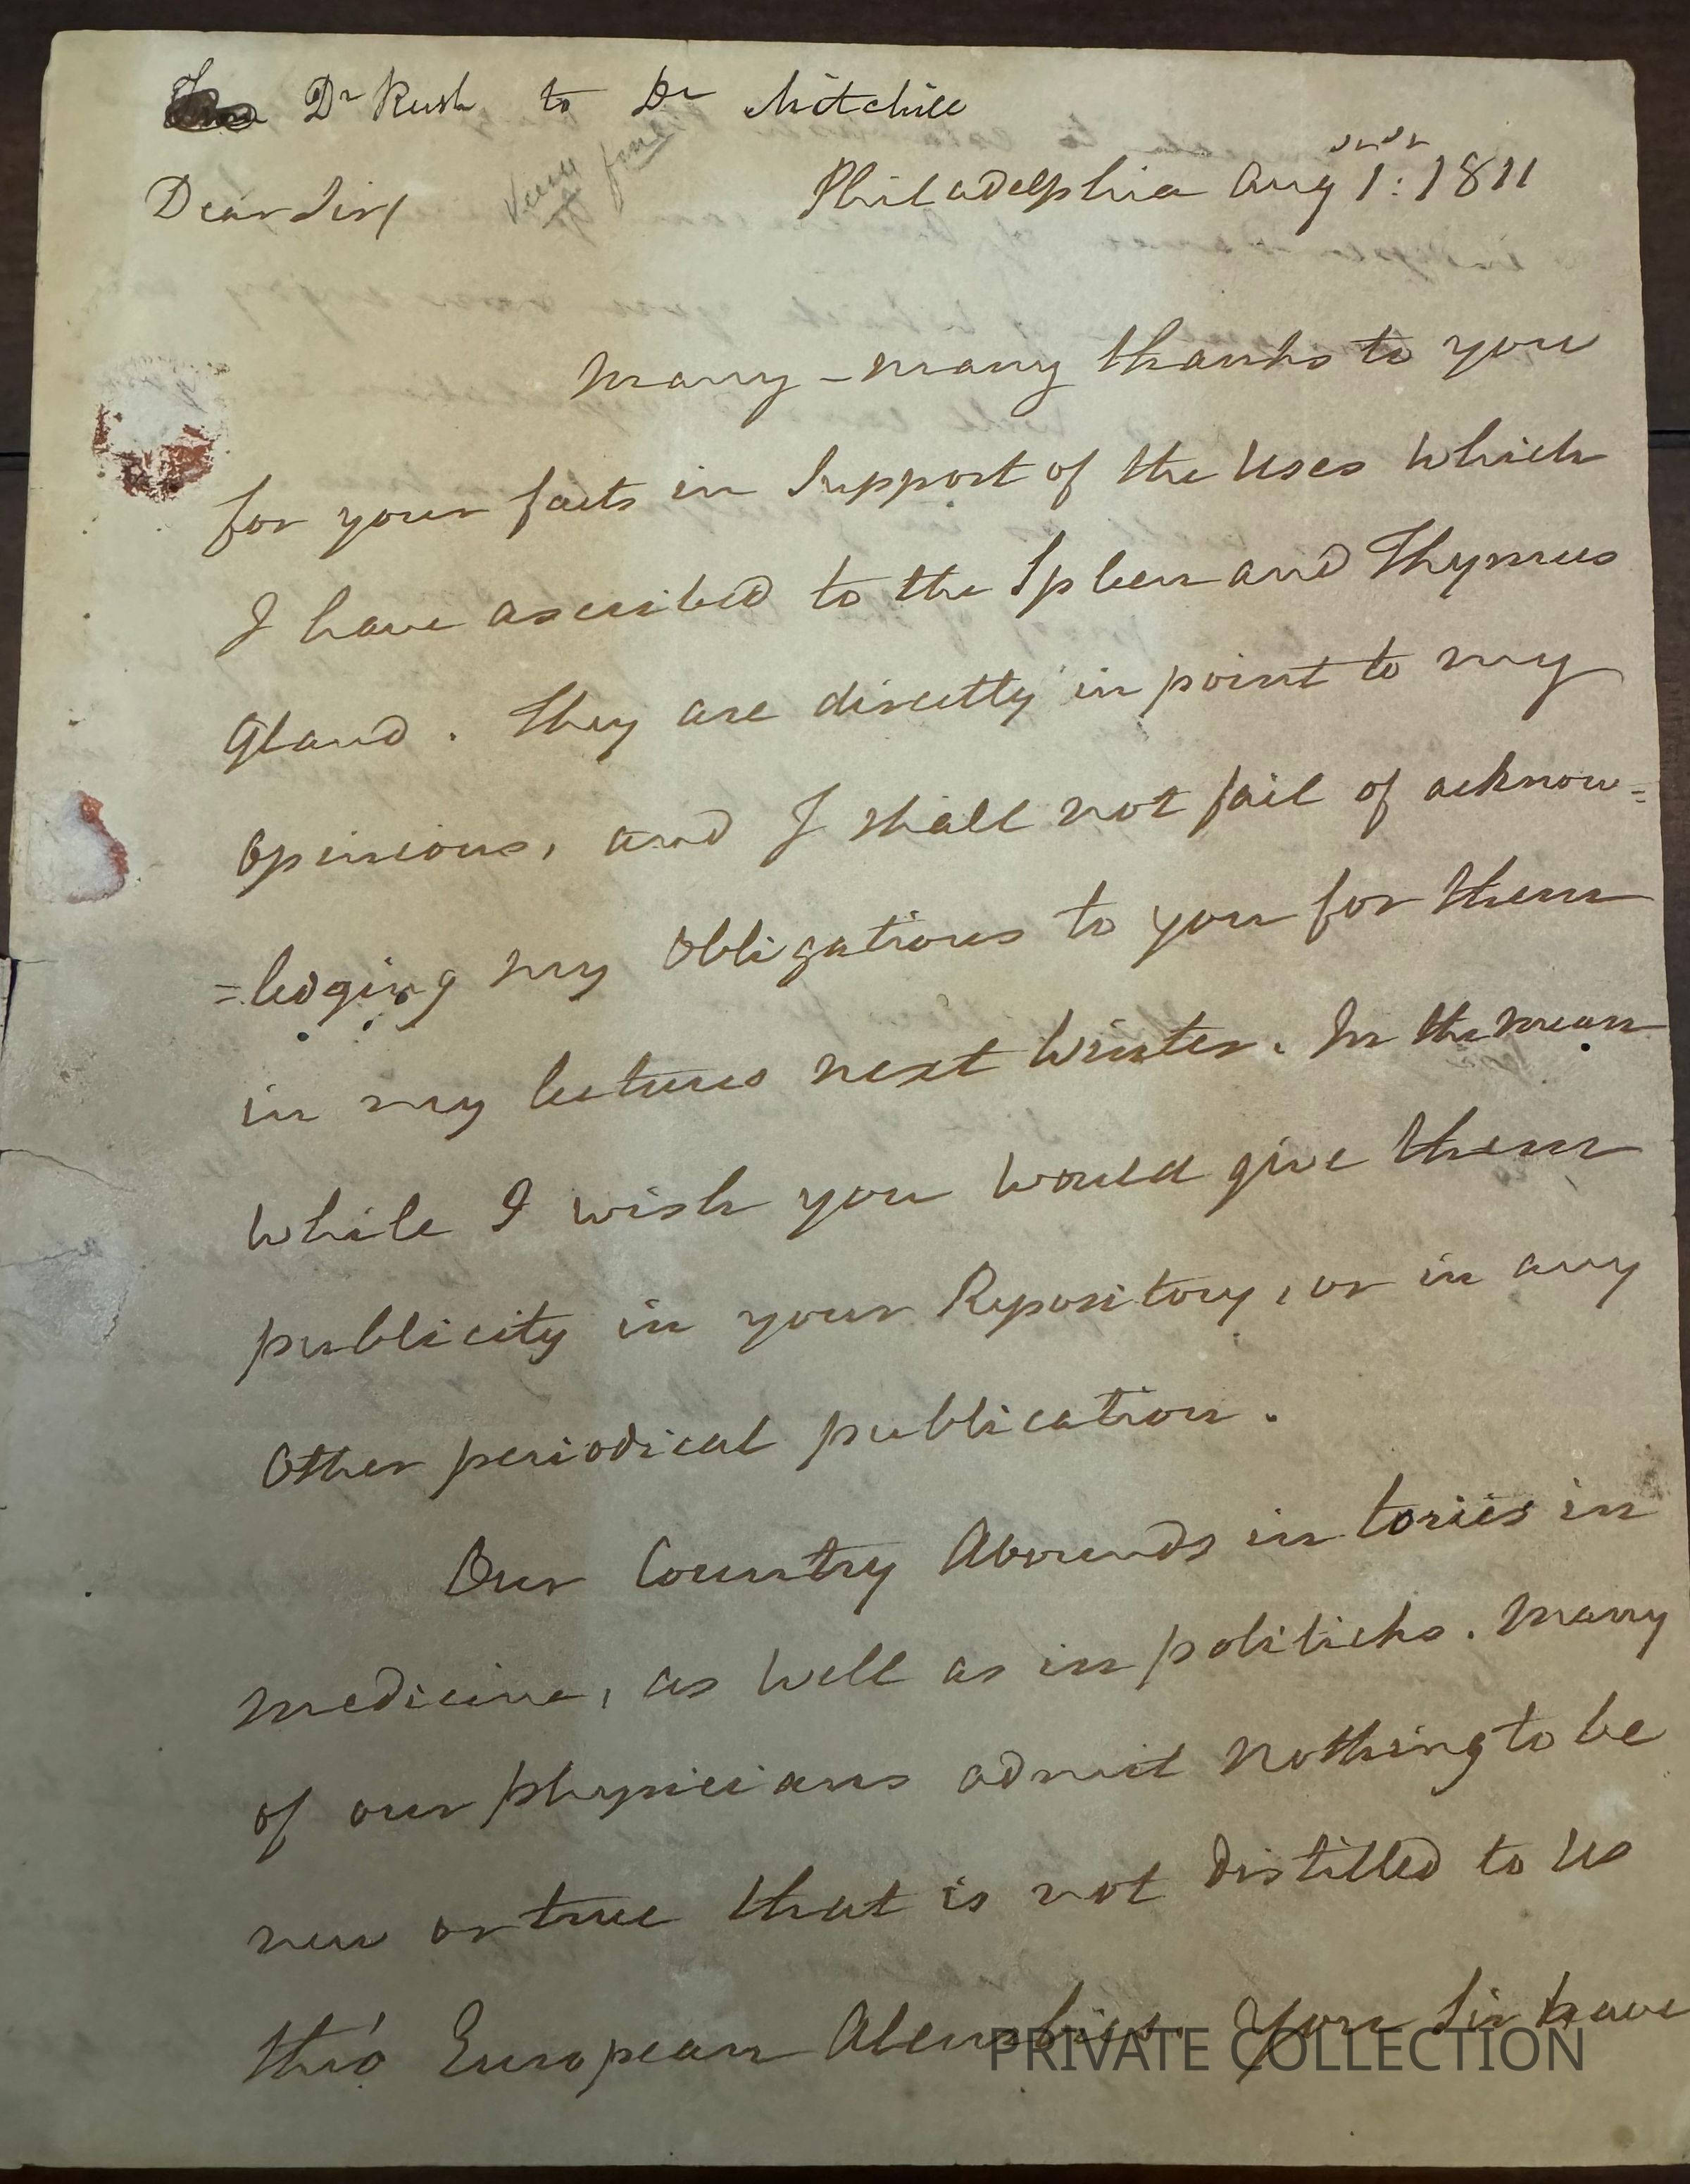 Dr Rush to Dr Mitchill
very fine
Dear Sir/ Philadelphia Aug 1: 1811
many - many thanks to you
for your facts in Support of the Uses which
I have ascribed to the Spleen and Thymus
Gland. They are directly in point to my
Opinions, and I shall not fail of acknow=
=ledging my Obligations to you for them
in my lectures next Winter. In the mean
While I wish you would give them
publicity in your Repository, or in any
Other periodical publication.
Our Country Abounds in tories in
medicine, as Well as in politicks. Many
of our physicians admit Nothing to be
new or true that is not distilled to Us
thro' European Alembics. You Sir have
PRIVATE COLLECTION